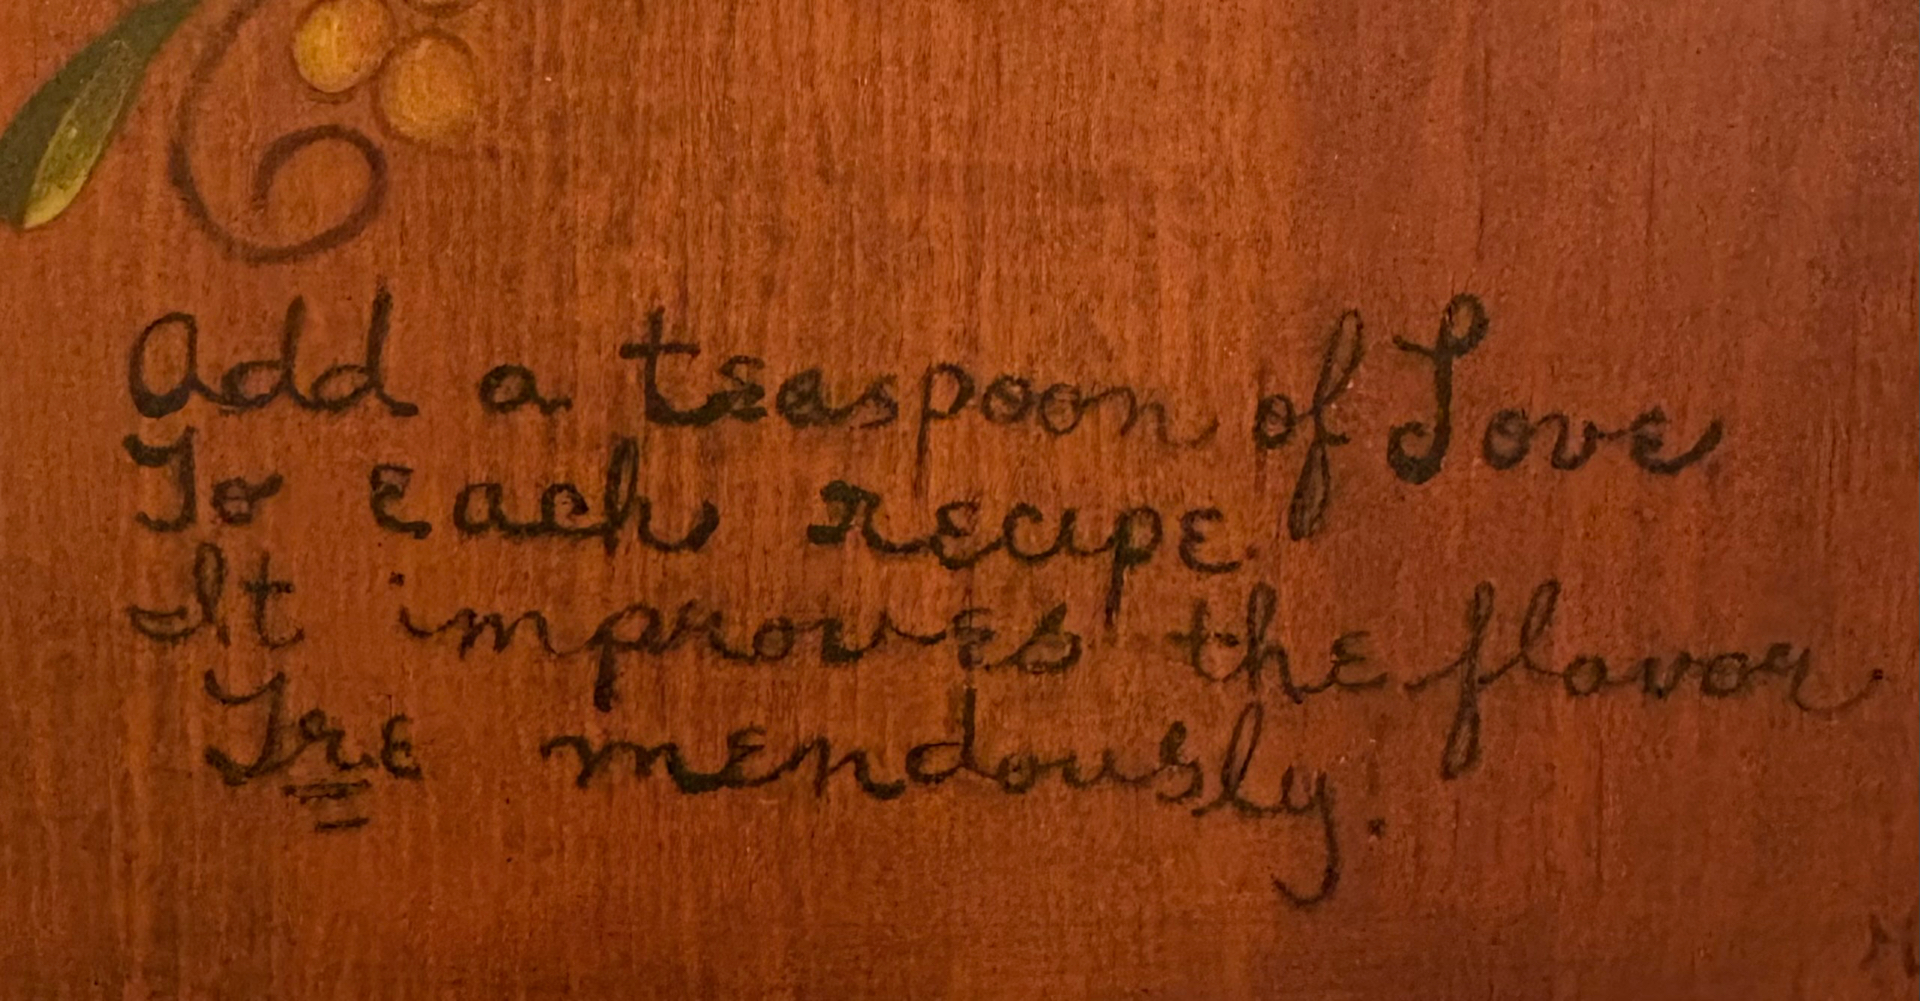 Add a teaspoon of Love
To Each recipe
It improves the flavor
Tre mendously.